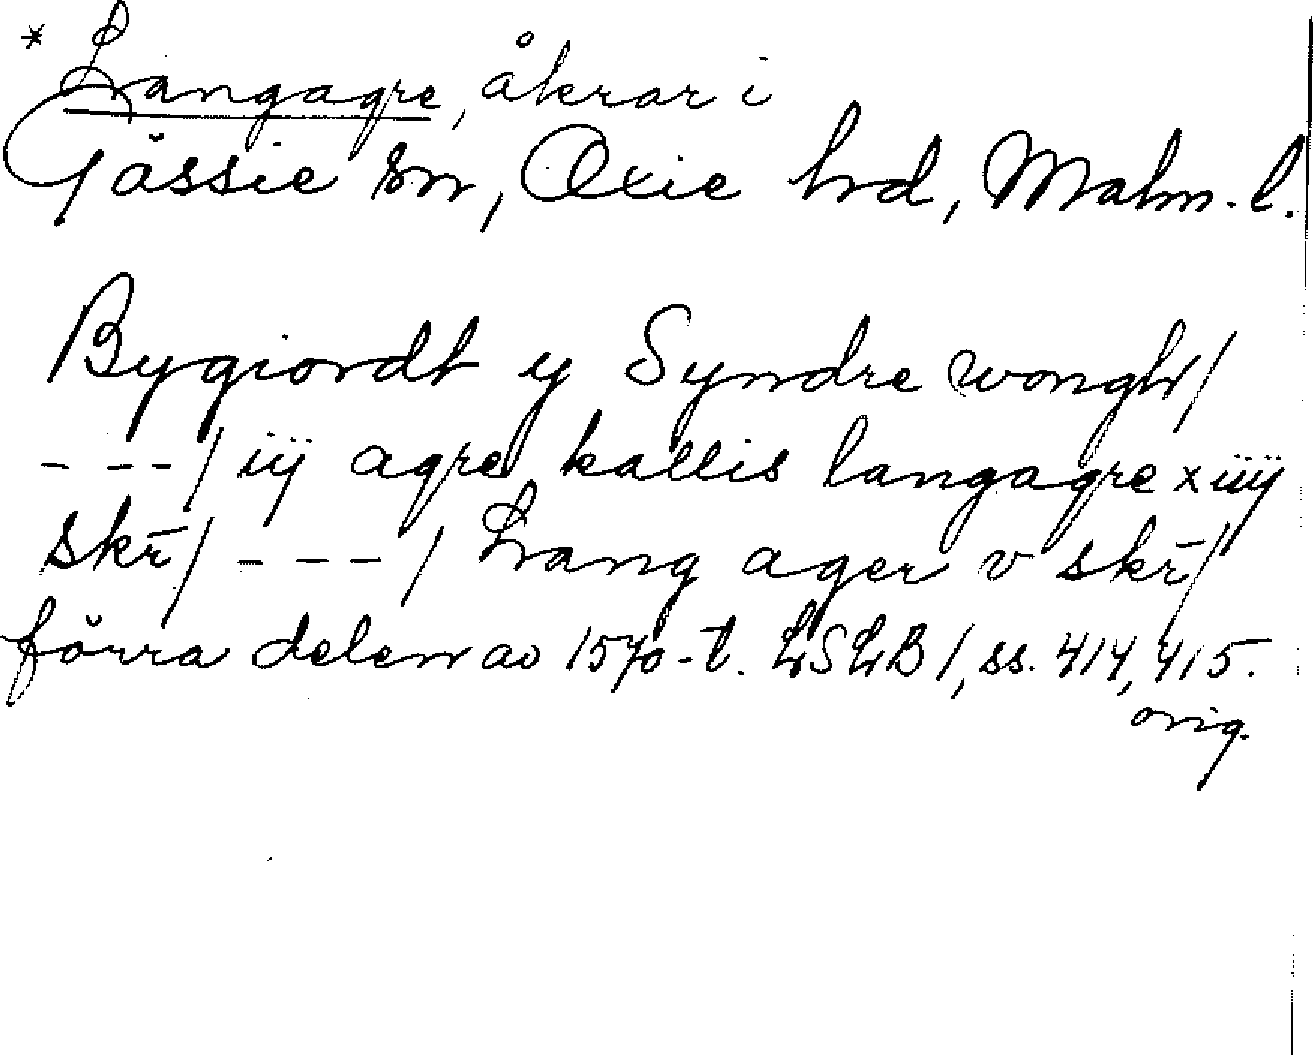 * Langagre, åkrar i
Gässie sn, Oxie hrd, Malm. l.
Bygiordt y Syndre wongh/
- - - / iij agre kallis langagre x iiij
skr̄/ - - - / Lang ager v skr̄/
förra delen av 1570-t. LSLB 1, ss. 414, 415.
orig.